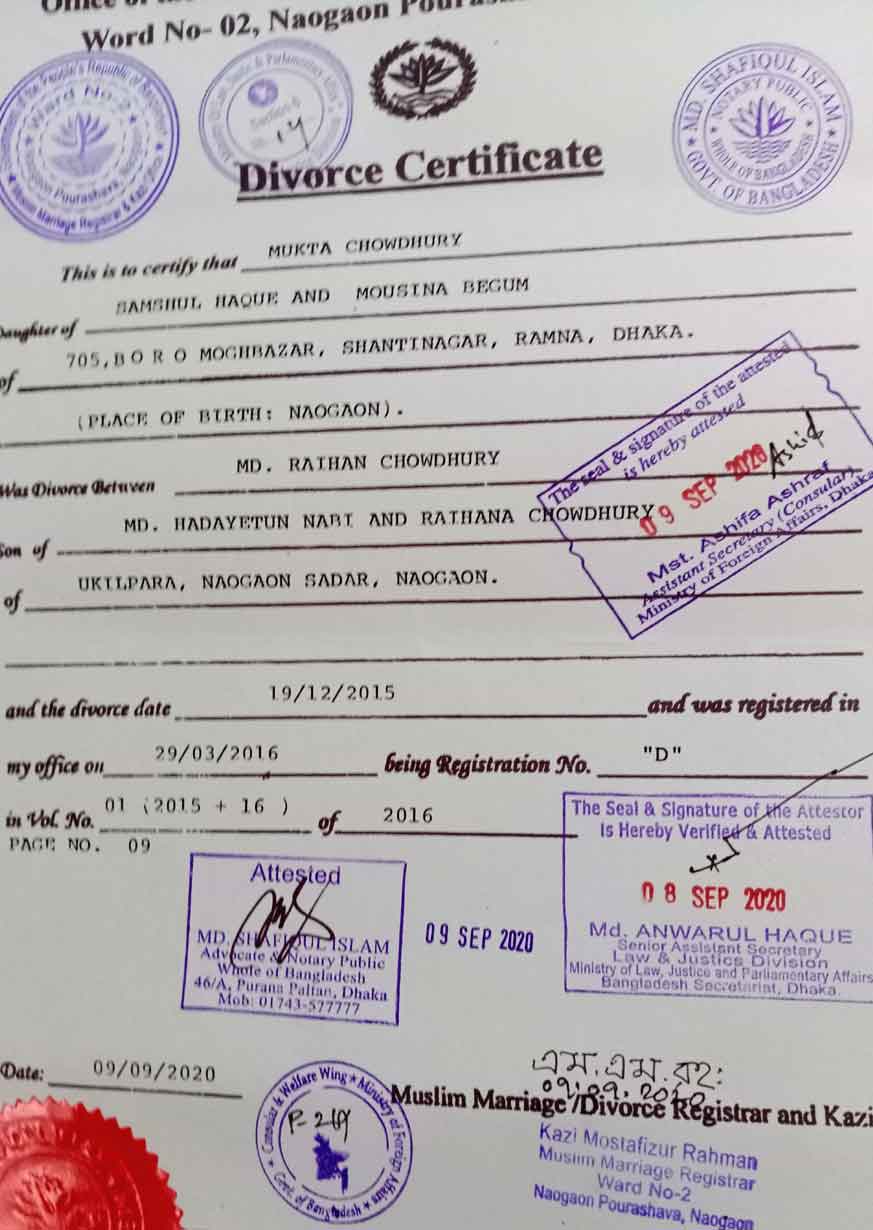 Word No- 02, Naogaon
MD. SHAFIQUL ISLAM
NOTARY PUBLIC
WHOLE OF BANGLADESH
GOVT. OF BANGLADESH
Ward No-2
Divorce Certificate
This is to certify that MUKTA CHOWDHURY
Daughter of SAMSHUL HAQUE AND MOUSINA BEGUM
of 705,B O R O MOGHBAZAR, SHANTINAGAR, RAMNA, DHAKA.
(PLACE OF BIRTH: NAOGAON).
Was Divorce Between MD. RAIHAN CHOWDHURY
Son of MD. HADAYETUN NABI AND RAIHANA CHOWDHURY
of UKILPARA, NAOGAON SADAR, NAOGAON.
The seal & signature of the attested
is hereby attested
09 SEP 2020
Mst. Ashifa Ashraf
Assistant Secretary (Consular)
Ministry of Foreign Affairs, Dhaka
and the divorce date 19/12/2015 and was registered in
my office on 29/03/2016 being Registration No. "D"
in Vol. No. 01 (2015 + 16 ) of 2016
PAGE NO. 09
The Seal & Signature of the Attestor
Is Hereby Verified & Attested
08 SEP 2020
Md. ANWARUL HAQUE
Senior Assistant Secretary
Law & Justics Division
Ministry of Law, Justice and Parliamentary Affairs
Bangladesh Secretariat, Dhaka.
Attested
MD. SHAFIQUL ISLAM
Advocate & Notary Public
Whole of Bangladesh
46/A, Purana Paltan, Dhaka
Mob: 01743-577777
09 SEP 2020
Date: 09/09/2020
Consular & Welfare Wing ★ Ministry of Foreign Affairs ★
Govt. of Bangladesh
Muslim Marriage /Divorce Registrar and Kazi
Kazi Mostafizur Rahman
Muslim Marriage Registrar
Ward No-2
Naogaon Pourashava, Naogaon